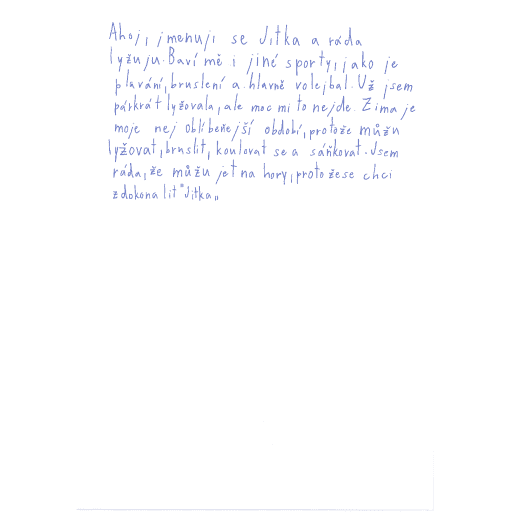 Ahoj, jmenuji se Jitka a ráda
lyžuju. Baví mě i jiné sporty, jako je
plavání, bruslení a hlavně volejbal. Už jsem
párkrát lyžovala, ale moc mi to nejde. Zima je
moje nej oblíbeňejší období, protože můžu
lyžovat, bruslit, koulovat se a sáňkovat. Jsem
ráda, že můžu jet na hory, proto žese chci
zdokonalit "Jitka„